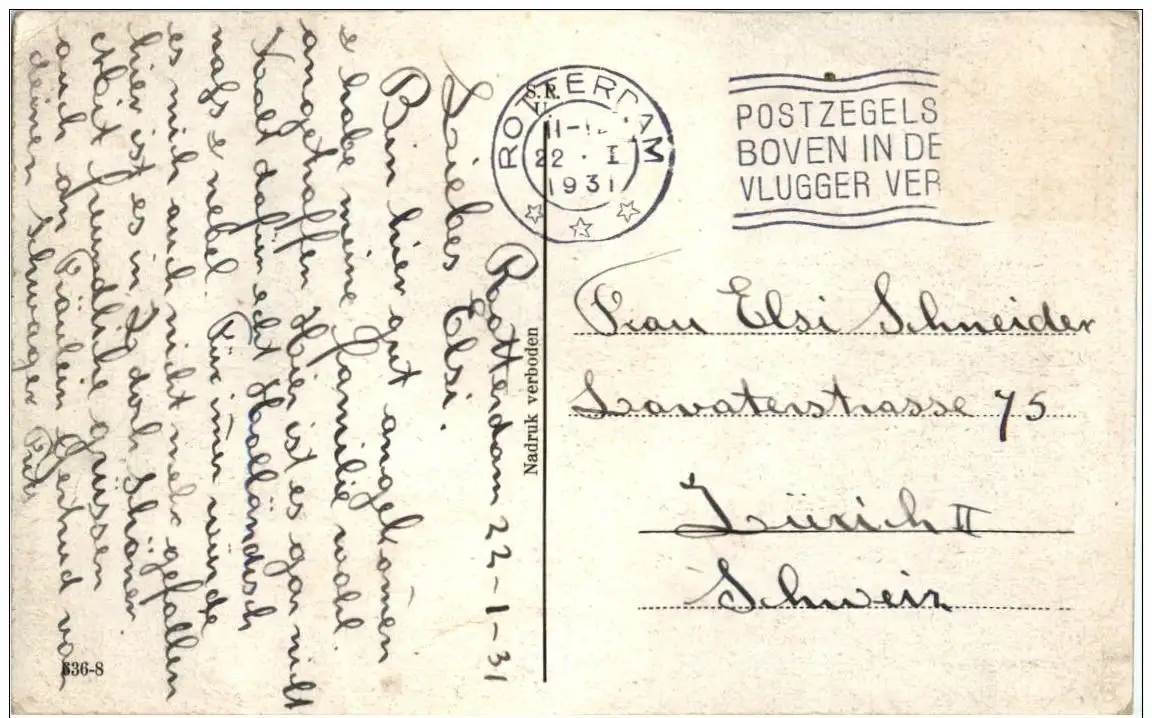 Rotterdam 22-1-31
Liebes Elsi.
Bin hier gut angekomen
e habe meine Familie wohl
angetroffen Hier ist es gar nicht
kalt dafür echt Holländisch
nass e nebel. Für immer würde
es mich auch nicht mehr gefallen
hier ist es in Z doch schöner
Mit freundliche grüssen
auch an Fräulein Gertrud von
deinen Schwager Piet
636-8
Nadruk verboden
ROTTERDAM
22 · I
1931
POSTZEGELS
BOVEN IN DE
VLUGGER VER
Frau Elsi Schneider
Lavaterstrasse 75
Zürich II
Schweiz